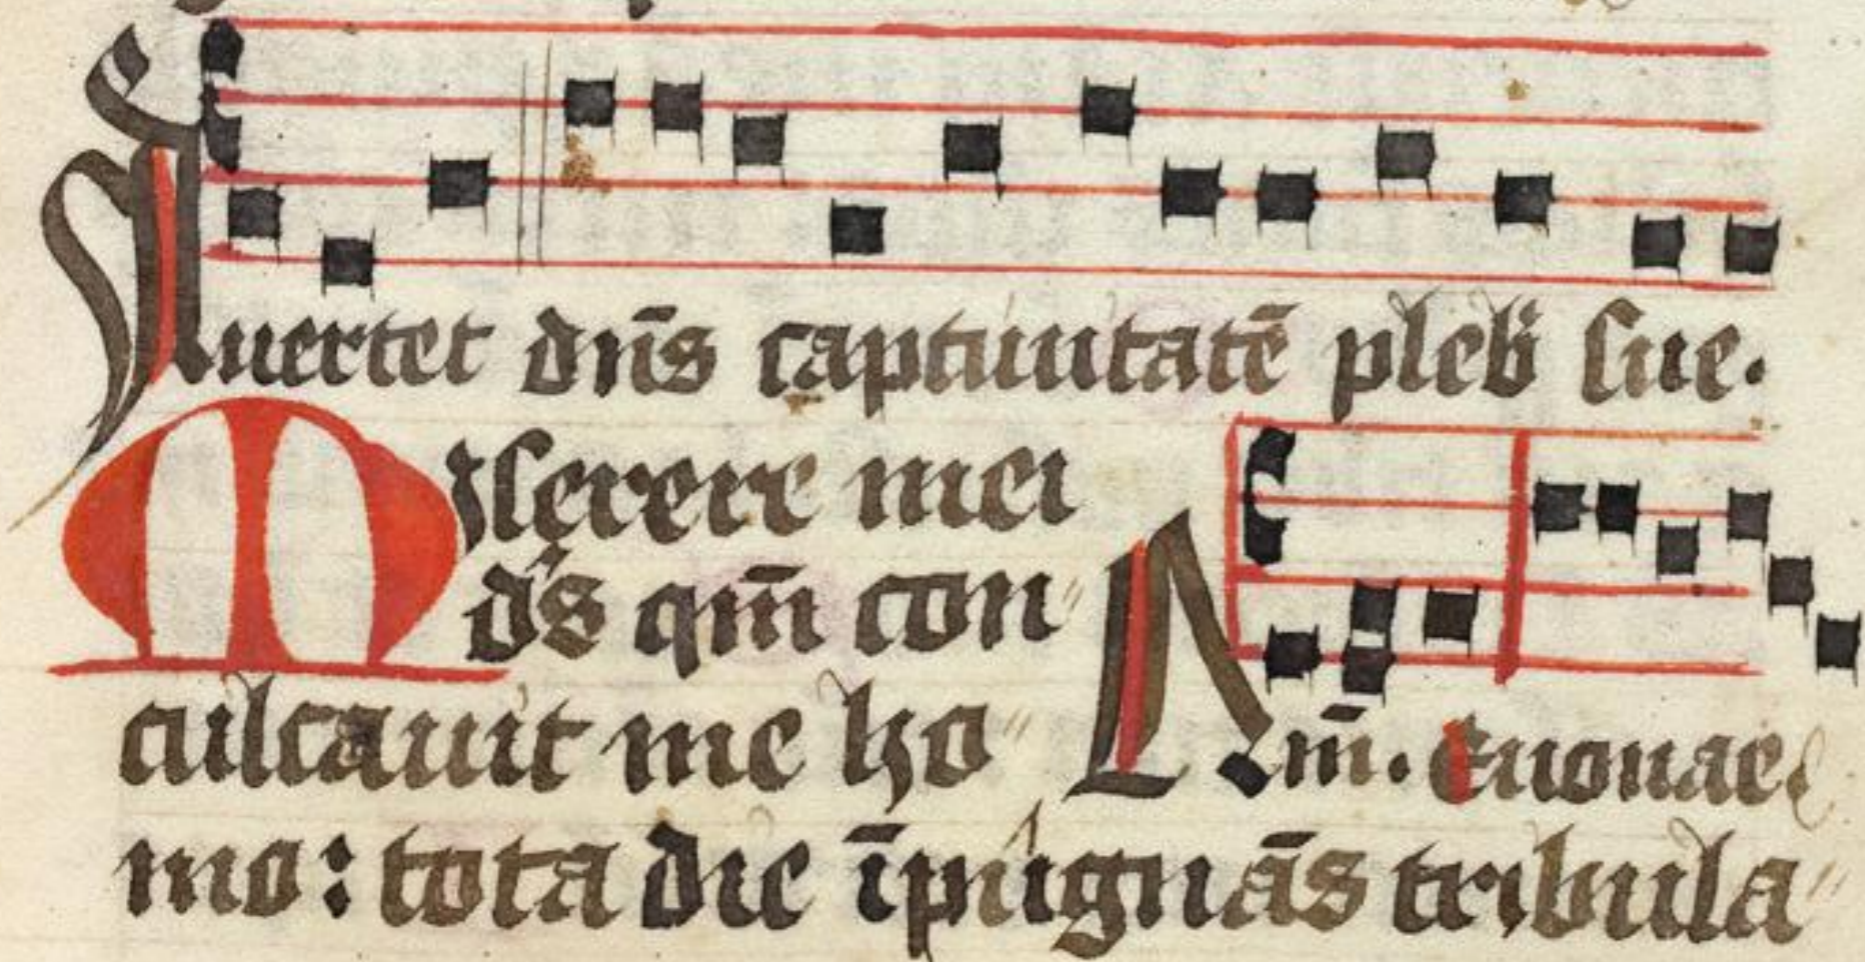 Auertet dn̄s captiuitatē pleb̄ sue.
Miserere mei
ds̄ qm̄ con
culcauit me ho
Am̄. Euouae
mo: tota die īpugnās tribula